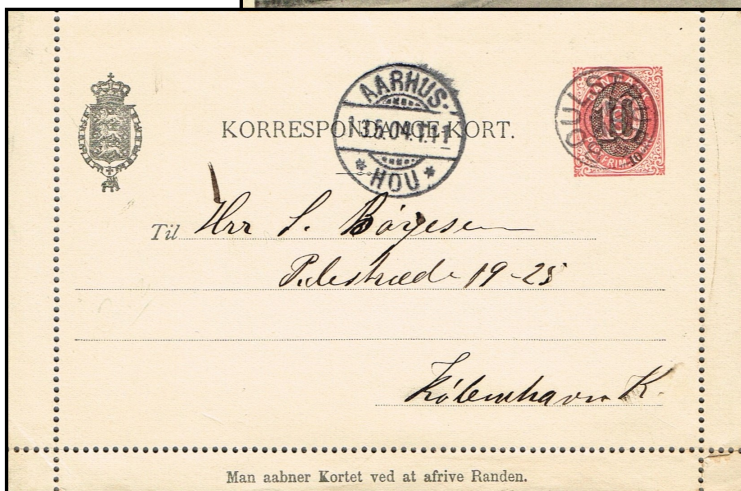 KORRESPONDANCE-KORT.
AARHUS.
13.5.04.T.11
* HOU *
10
Til Hrr S. Børgesen
Pilestræde 19-25
København K.
Man aabner Kortet ved at afrive Randen.